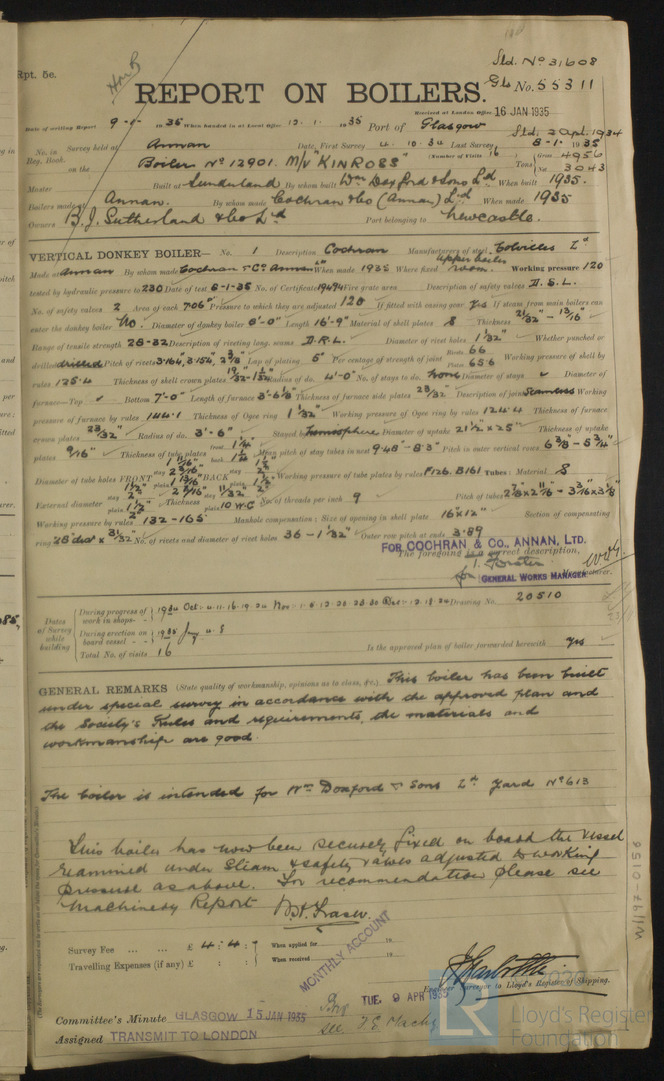 Std. No 31608
Rpt. 5c.
Gls No. 55311
REPORT ON BOILERS.
Received at London Office 16 JAN 1935
Date of writing Report 9-1-1935 When handed in at Local Office 12.1.1935 Port of Glasgow
No. in Reg. Book. Survey held at Annan Date, First Survey 4.10.34 Last Survey 8-1-1935
on the Boiler No 12901. M/V "KINROSS" (Number of Visits 16) Tons Gross 4956 Net 3043
Master Built at Sunderland By whom built Wm Doxford & Sons Ld When built 1935.
Boilers made at Annan. By whom made Cochran & Co (Annan) Ld When made 1935
Owners B.J. Sutherland & Co Ld Port belonging to Newcastle.
VERTICAL DONKEY BOILER— No. 1 Description Cochran Manufacturers of steel Colvilles Ld
Made at Annan By whom made Cochran & Co Annan Ld When made 1935 Where fixed Upper boiler room. Working pressure 120
tested by hydraulic pressure to 230 Date of test 8-1-35 No. of Certificate 19494 Fire grate area Description of safety valves D.S.L.
No. of safety valves 2 Area of each 7.06" Pressure to which they are adjusted 120 If fitted with easing gear Yes If steam from main boilers can
enter the donkey boiler No. Diameter of donkey boiler 8'-0" Length 16'-9" Material of shell plates S Thickness 21/32" - 13/16"
Range of tensile strength 28-32 Description of riveting long. seams D.R.L. Diameter of rivet holes 1 1/32" Whether punched or
drilled drilled Pitch of rivets 3.164", 3.154", 2 3/8" Lap of plating 5" Per centage of strength of joint Rivets 66 Plates 65.6 Working pressure of shell by
rules 125.4 Thickness of shell crown plates Radius of do. 4'-0" No. of stays to do. none Diameter of stays
furnace—Top Bottom 7'-0" Length of furnace 3'-6 1/8" Thickness of furnace side plates 23/32" Description of joint Seamless Working
pressure of furnace by rules 144.1 Thickness of Ogee ring 1 1/32" Working pressure of Ogee ring by rules 124.4 Thickness of furnace
crown plates 23/32" Radius of do. 3'-6" Stayed by hemisphere Diameter of uptake 21 1/2" x 25" Thickness of uptake
plates 9/16" Thickness of tube plates front 1 1/4" back Mean pitch of stay tubes in nest 9.48" - 8.3" Pitch in outer vertical rows 6 3/8" - 5 3/4"
Diameter of tube holes FRONT BACK Working pressure of tube plates by rules F126. B161 Tubes: Material S
External diameter Thickness 10 W.G. No. of threads per inch 9 Pitch of tubes
Working pressure by rules 132 - 165 Manhole compensation: Size of opening in shell plate 16" x 12" Section of compensating
ring No. of rivets and diameter of rivet holes 36 - 1 1/32" Outer row pitch at ends 3.89
FOR COCHRAN & CO., ANNAN, LTD.
The foregoing is a correct description,
GENERAL WORKS MANAGER Manufacturer.
Dates of Survey while building
During progress of work in shops - - 1934 Oct: 4.11.16.19.24 Nov: Dec: 12.18.24 Drawing No. 20510
During erection on board vessel - - 1935 Jany 4.8
Total No. of visits 16 Is the approved plan of boiler forwarded herewith Yes
GENERAL REMARKS (State quality of workmanship, opinions as to class, &c.) This boiler has been built
under special survey in accordance with the approved plan and
the Society's Rules and requirements, the materials and
workmanship are good.
The boiler is intended for Wm Doxford & Sons Ld Yard No 613
This boiler has now been securely fixed on board the vessel
examined under steam & safety valves adjusted to working
pressure as above. For recommendation please see
Machinery Report N.H. Fraser.
Survey Fee ... ... £ 4 : 4 : When applied for 19
Travelling Expenses (if any) £ : : When received 19
MONTHLY ACCOUNT
Engineer Surveyor to Lloyd's Register of Shipping.
TUE. 9 APR 1935
Committee's Minute GLASGOW 15 JAN 1935
Assigned TRANSMIT TO LONDON
W1197-0156
Lloyd's Register
Foundation